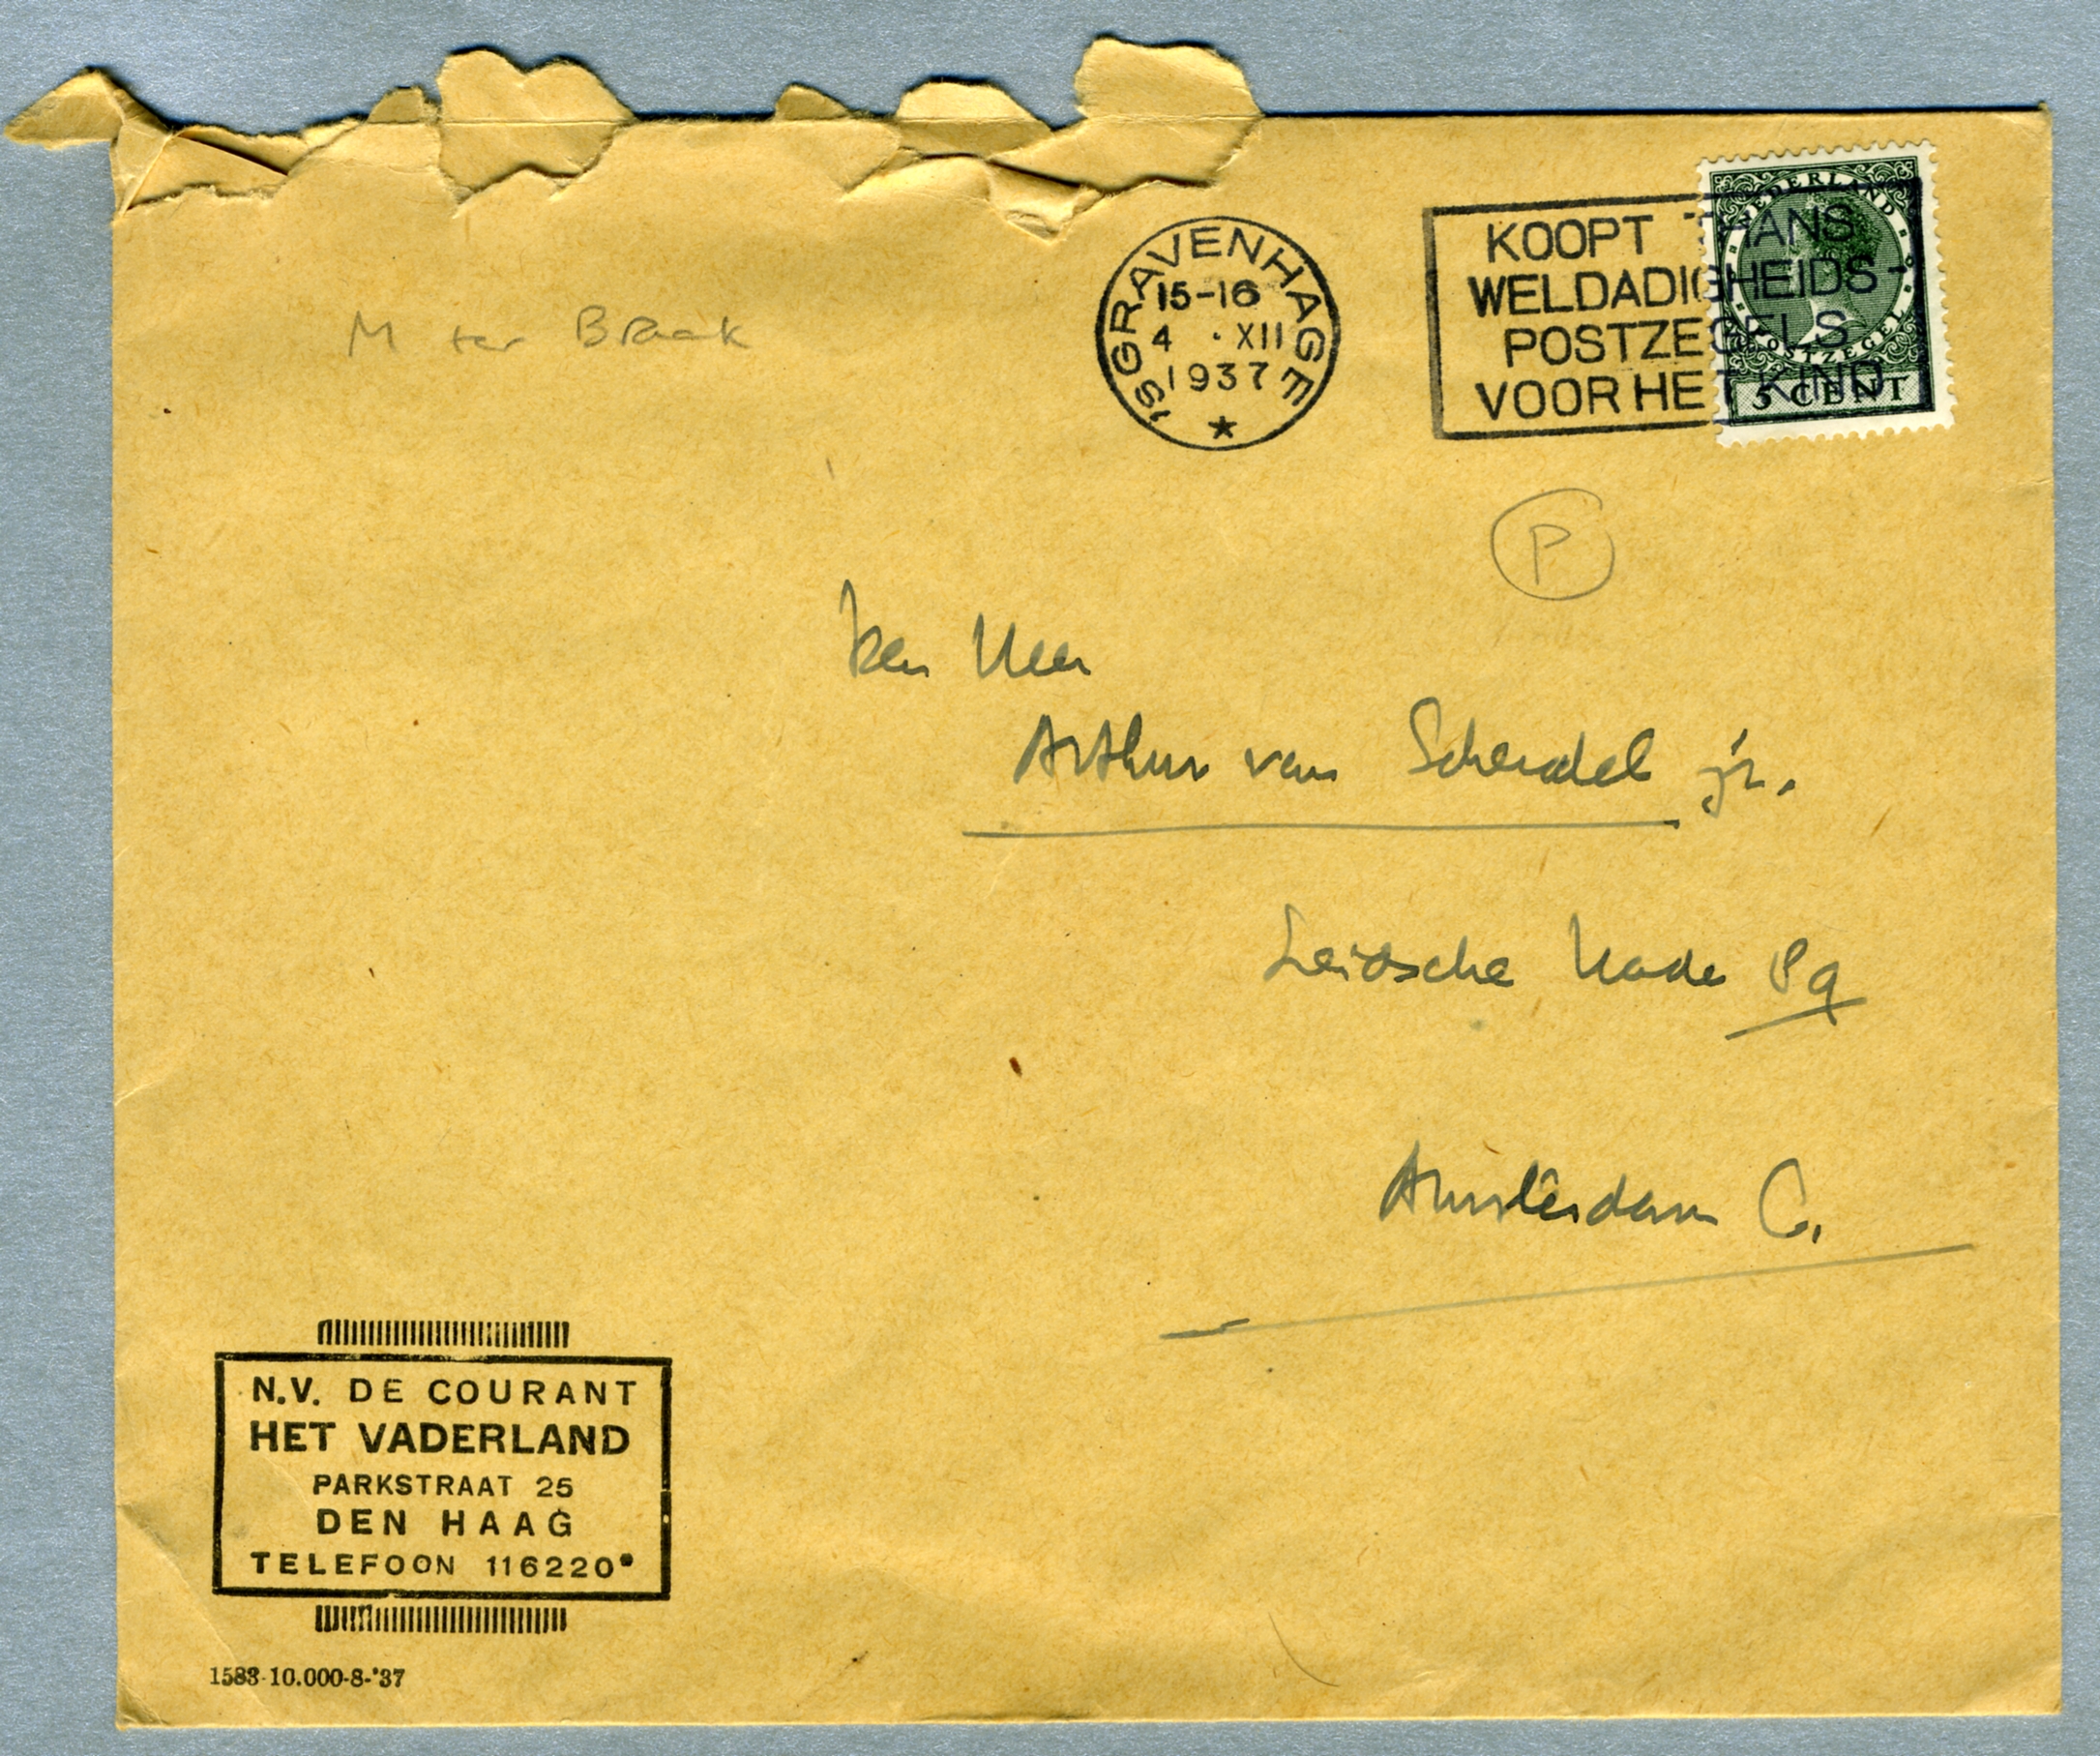 'SGRAVENHAGE
15-16
4 · XII
1937
KOOPT THANS
WELDADIGHEIDS-
POSTZEGELS
VOOR HET KIND
NEDERLAND
POSTZEGEL
5 CENT
M ter Braak
P
Den Heer
Arthur van Schendel jr.
Leidsche Kade
Amsterdam C.
N.V. DE COURANT
HET VADERLAND
PARKSTRAAT 25
DEN HAAG
TELEFOON 116220*
1583-10.000-8-'37